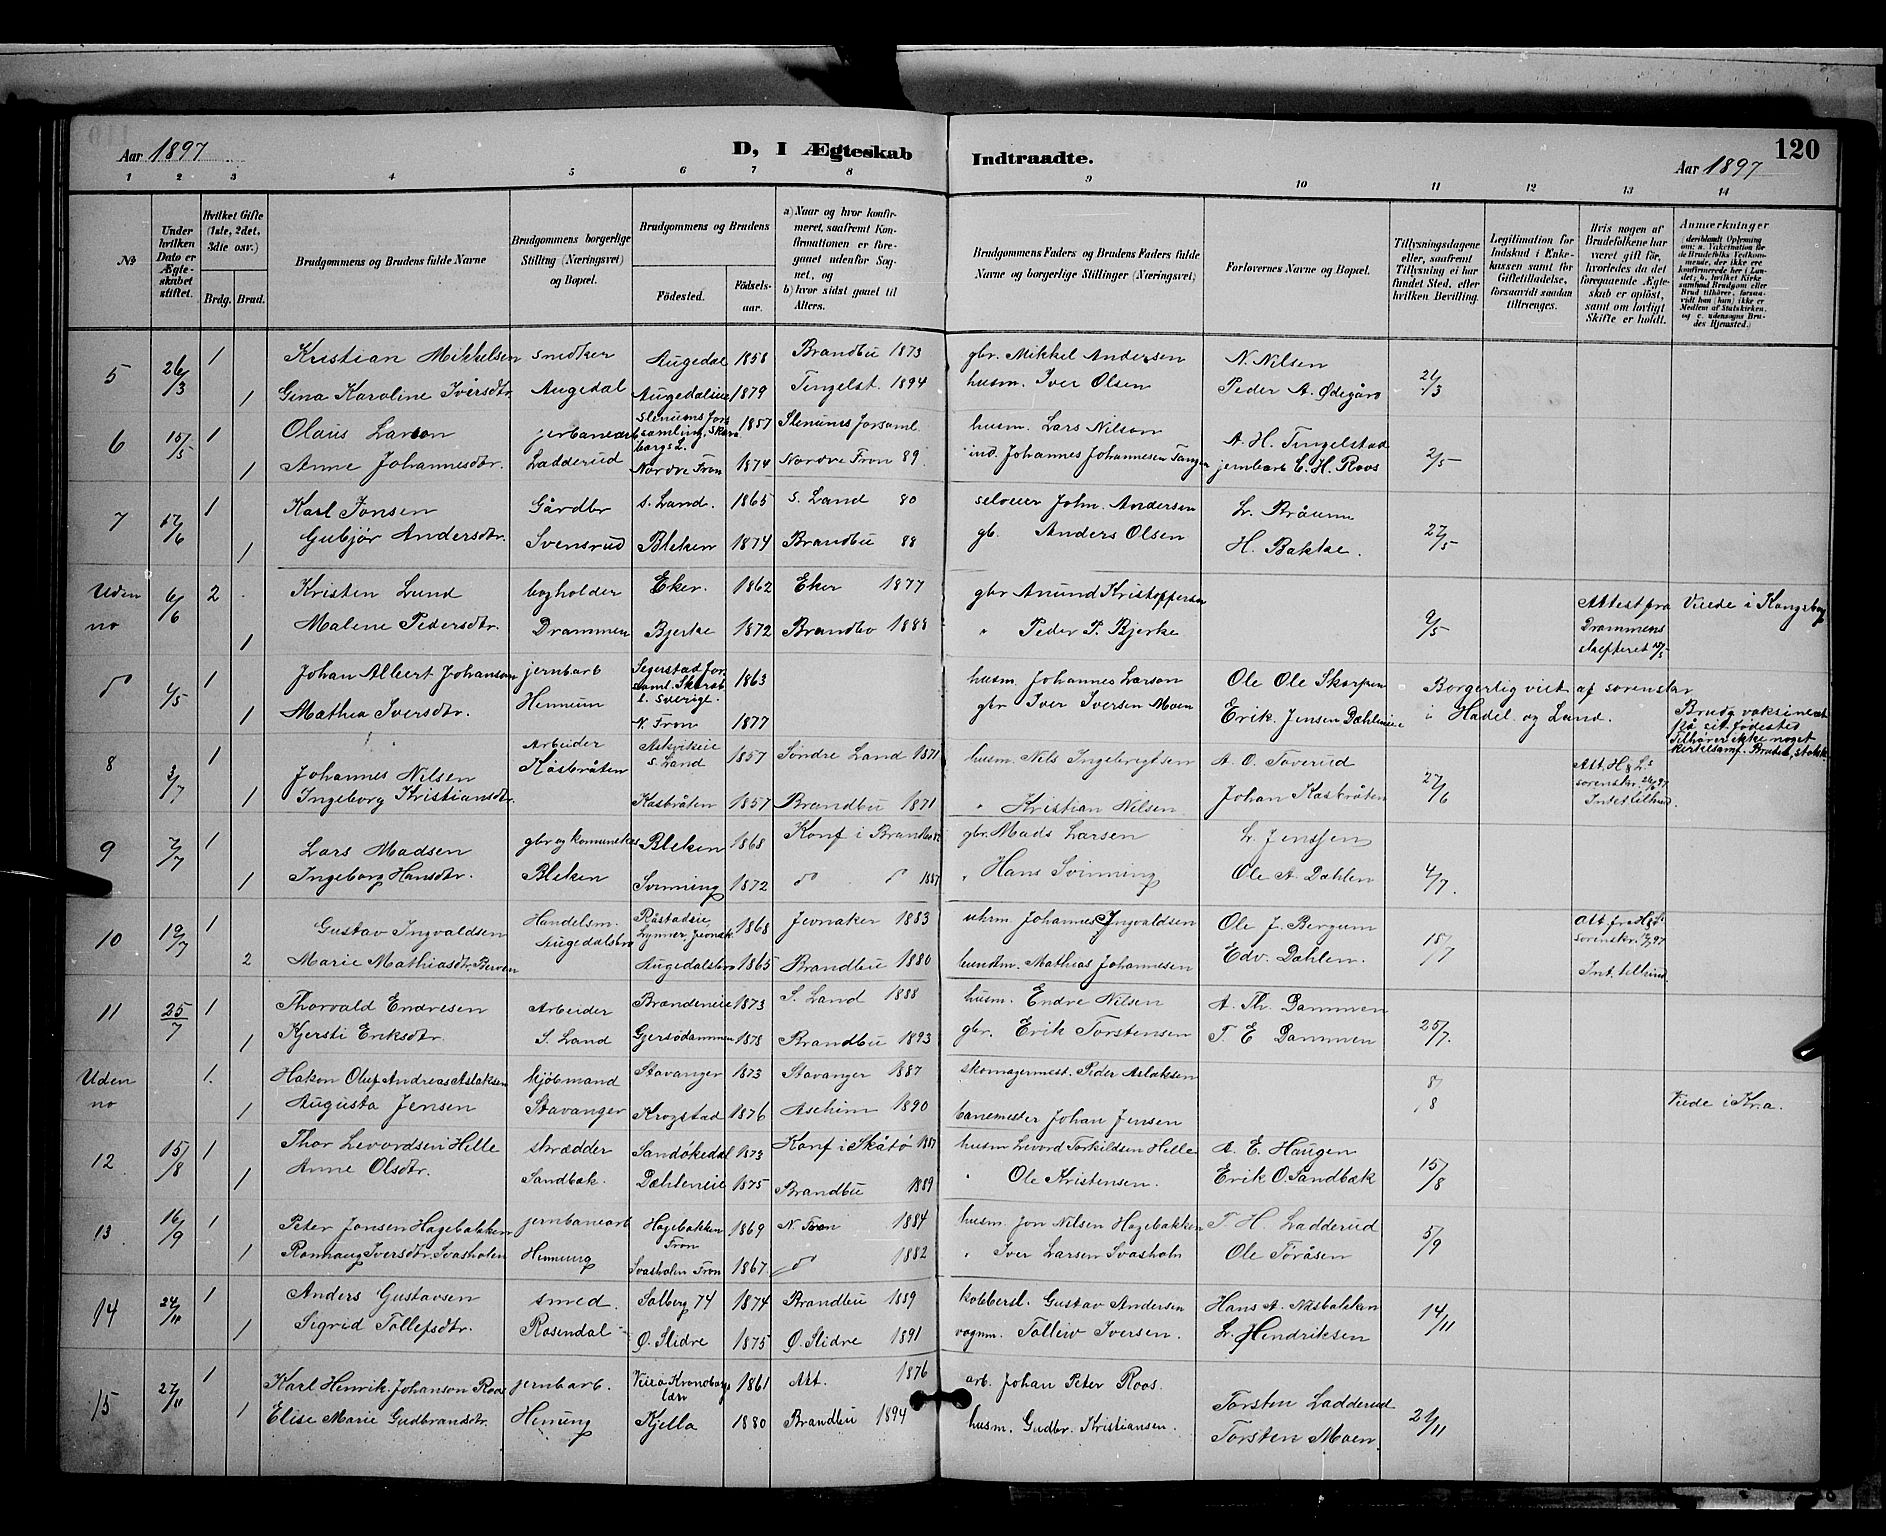 Aar 1897
D, I Ægteskab
Indtraadte.
Aar 1897
120
1 2 3 4 5 6 7 8 9 10 11 12 13 14
№
Under hvilken Dato er Ægteskabet stiftet.
Hvilket Gifte (1ste, 2det, 3die osv.)
Brdg. Brud.
Brudgommens og Brudens fulde Navne
Brudgommens borgerlige Stilling (Næringsvei) og Bopæl.
Brudgommens og Brudens
Födested.
Födselsaar.
a) Naar og hvor konfirmeret, saafremt Konfirmationen er foregaaet udenfor Sognet, og
b) hvor sidst gaaet til Alters.
Brudgommens Faders og Brudens Faders fulde Navne og borgerlige Stillinger (Næringsvei)
Forlovernes Navne og Bopæl.
Tillysningsdagene eller, saafremt Tillysning ei har fundet Sted, efter hvilken Bevilling.
Legitimation for Indskud i Enkekassen samt for Giftetilladelse, forsaavidt saadan tiltrænges.
Hvis nogen af Brudefolkene har været gift för, hvorledes da det foregaaende Ægteskab er oplöst, samt om lovligt Skifte er holdt.
Anmærkninger
5 26/3 1 Kristian Mikkelsen smedker Augedal 1858 Brandbu 1873 gbr. Mikkel Andersen N. Nilsen 21/3
1 Gina Karoline Iversdtr. Augedal Augedalseie 1879 Tingelst. 1894 husm. Iver Olsen Peder A. Ødegård
6 15/5 1 Olaus Larson jerbanearb Stenums Forsamling, Skaraborgs L. 1857 Stenums Forsaml. husm. Lars Nilson A. H. Tingelstad 2/5
1 Anne Johannesdtr. Ladderud Nordre Fron 1874 Nordre Fron 89 ind. Johannes Johannesen Tangen jernbarb C. H. Roos
7 17/6 1 Karl Jonsen Gårdbr S. Land. 1865 S. Land 80 seloeier John Andersen L. Bråum 27/5
1 Gubjör Andersdtr. Svensrud Bleken 1874 Brandbu 88 gb. Anders Olsen H. Bakke.
Uden no 6/6 2 Kristen Lund bogholder Eker. 1862 Eker 1877 gbr Anund Kristoffersen 9/5 Attest fra Drammens Viede i Kongsberg
1 Malene Pedersdtr. Drammen Bjerke 1872 Brandbu 1888 " Peder P. Bjerke
do 4/5 1 Johan Albert Johanson jernbarb Segerstad forsaml. Skarab l. Sverige. 1863 husm. Johannes Larson Ole Ole Skarpen Borgerlig viet af sorenskr
1 Mathea Iversdtr. Hennum N. Fron 1877 gbr Iver Iversen Moen Erik Jensen Dæhlineie i Hadel. og Land. Brudg vaksineret på sit fødested Tilhører ikke noget kirkesamf. Bruden, statsk
8 3/7 1 Johannes Nilsen Arbeider Kåsbråten Askvikeie S. Land 1857 Søndre Land 1871 husm. Nils Ingebrigtsen A. O. Toverud 27/6 Att. H & L's sorenskr. 26/6 97 Intet tilhind.
1 Ingeborg Kristiansdtr. Kasbråten 1857 Brandbu 1871 " Kristian Nilsen Johan Kasbråten
9 7/7 1 Lars Madsen gbr og komunekas Bleken 1868 Konf i Brandbu 82 gbr. Mads Larsen L. Jenssen 4/7
1 Ingeborg Hansdtr. Bleken Svinning 1872 do do 1887 " Hans Svinning Ole A. Dæhlen
10 19/7 1 Gustav Ingvaldsen Handelsm. Råstadeie Lynner, Jevnak. 1868 Jevnaker 1883 uhrm. Johannes Ingvaldsen Ole J. Bergum 18/7 Att. fr H & L sorenskr. 97
2 Marie Mathiasdtr. Berven Augedalsbro Augedalsbro 1865 Brandbu 1880 buntm. Mathias Johannesen Edv. Dæhlen. Int. tilhind.
11 25/7 1 Thorvald Endresen Arbeider Brandeneie 1873 S. Land 1888 husm. Endre Nilsen A. Th. Dammen 25/7.
1 Kjersti Eriksdtr. S. Land Gjersødammen 1878 Brandbu 1893 gbr. Erik Torstensen T. E Dammen
Uden no 1. Hakon Oluf Andreas Aslaksen kjöbmand Stavanger 1873 Stavanger 1887 skomagermest. Peder Aslaksen 8/8 Viede i Kr.a.
1 Augusta Jensen Stavanger Krogstad 1876 Aschim 1890 banemester Johan Jensen
12 15/8 1 Thor Levordsen Hille skrædder Sandökedal 1873 Konf i Skåtö 1887 husm Levord Torkildsen Hille A. E. Haugen 15/8
1 Anne Olsdtr. Sandbæk. Dæhleneie 1875 Brandbu 1889 " Ole Kristensen. Erik O. Sandbæk
13 16/9 1 Peter Jonsen Hagebakken jernbanearb Hagebakken Fron 1869 N. Fron 1884 husm. Jon Nilsen Hagebakken T. H. Ladderud 5/9
1 Rannaug Iversdtr. Svasholen Hennung Svasholen Fron 1867 do 1882 " Iver Larsen Svasholn Ole Töråsen
14 24/11 1 Anders Gustavsen smed. Solberg 74 1874 Brandbu 1889 kobbersl. Gustav Andersen Hans A. Næsbakken 14/11
1 Sigrid Tollefsdtr. Rosendal Ø. Slidre 1875 Ø. Slidre 1891 vognm. Tollew Iversen. L. Hendriksen
15 27/11 1 Karl Henrik Johanson Roos jernbarb. Kronobergs læn 1861 Att. 1876 arb. Johan Peter Roos. Torsten Ladderud 21/11
1 Elise Marie Gudbrandsdtr. Henung Kjella 1880 Brandbu 1894 husm. Gudbr. Kristiansen. Torsten Moen.